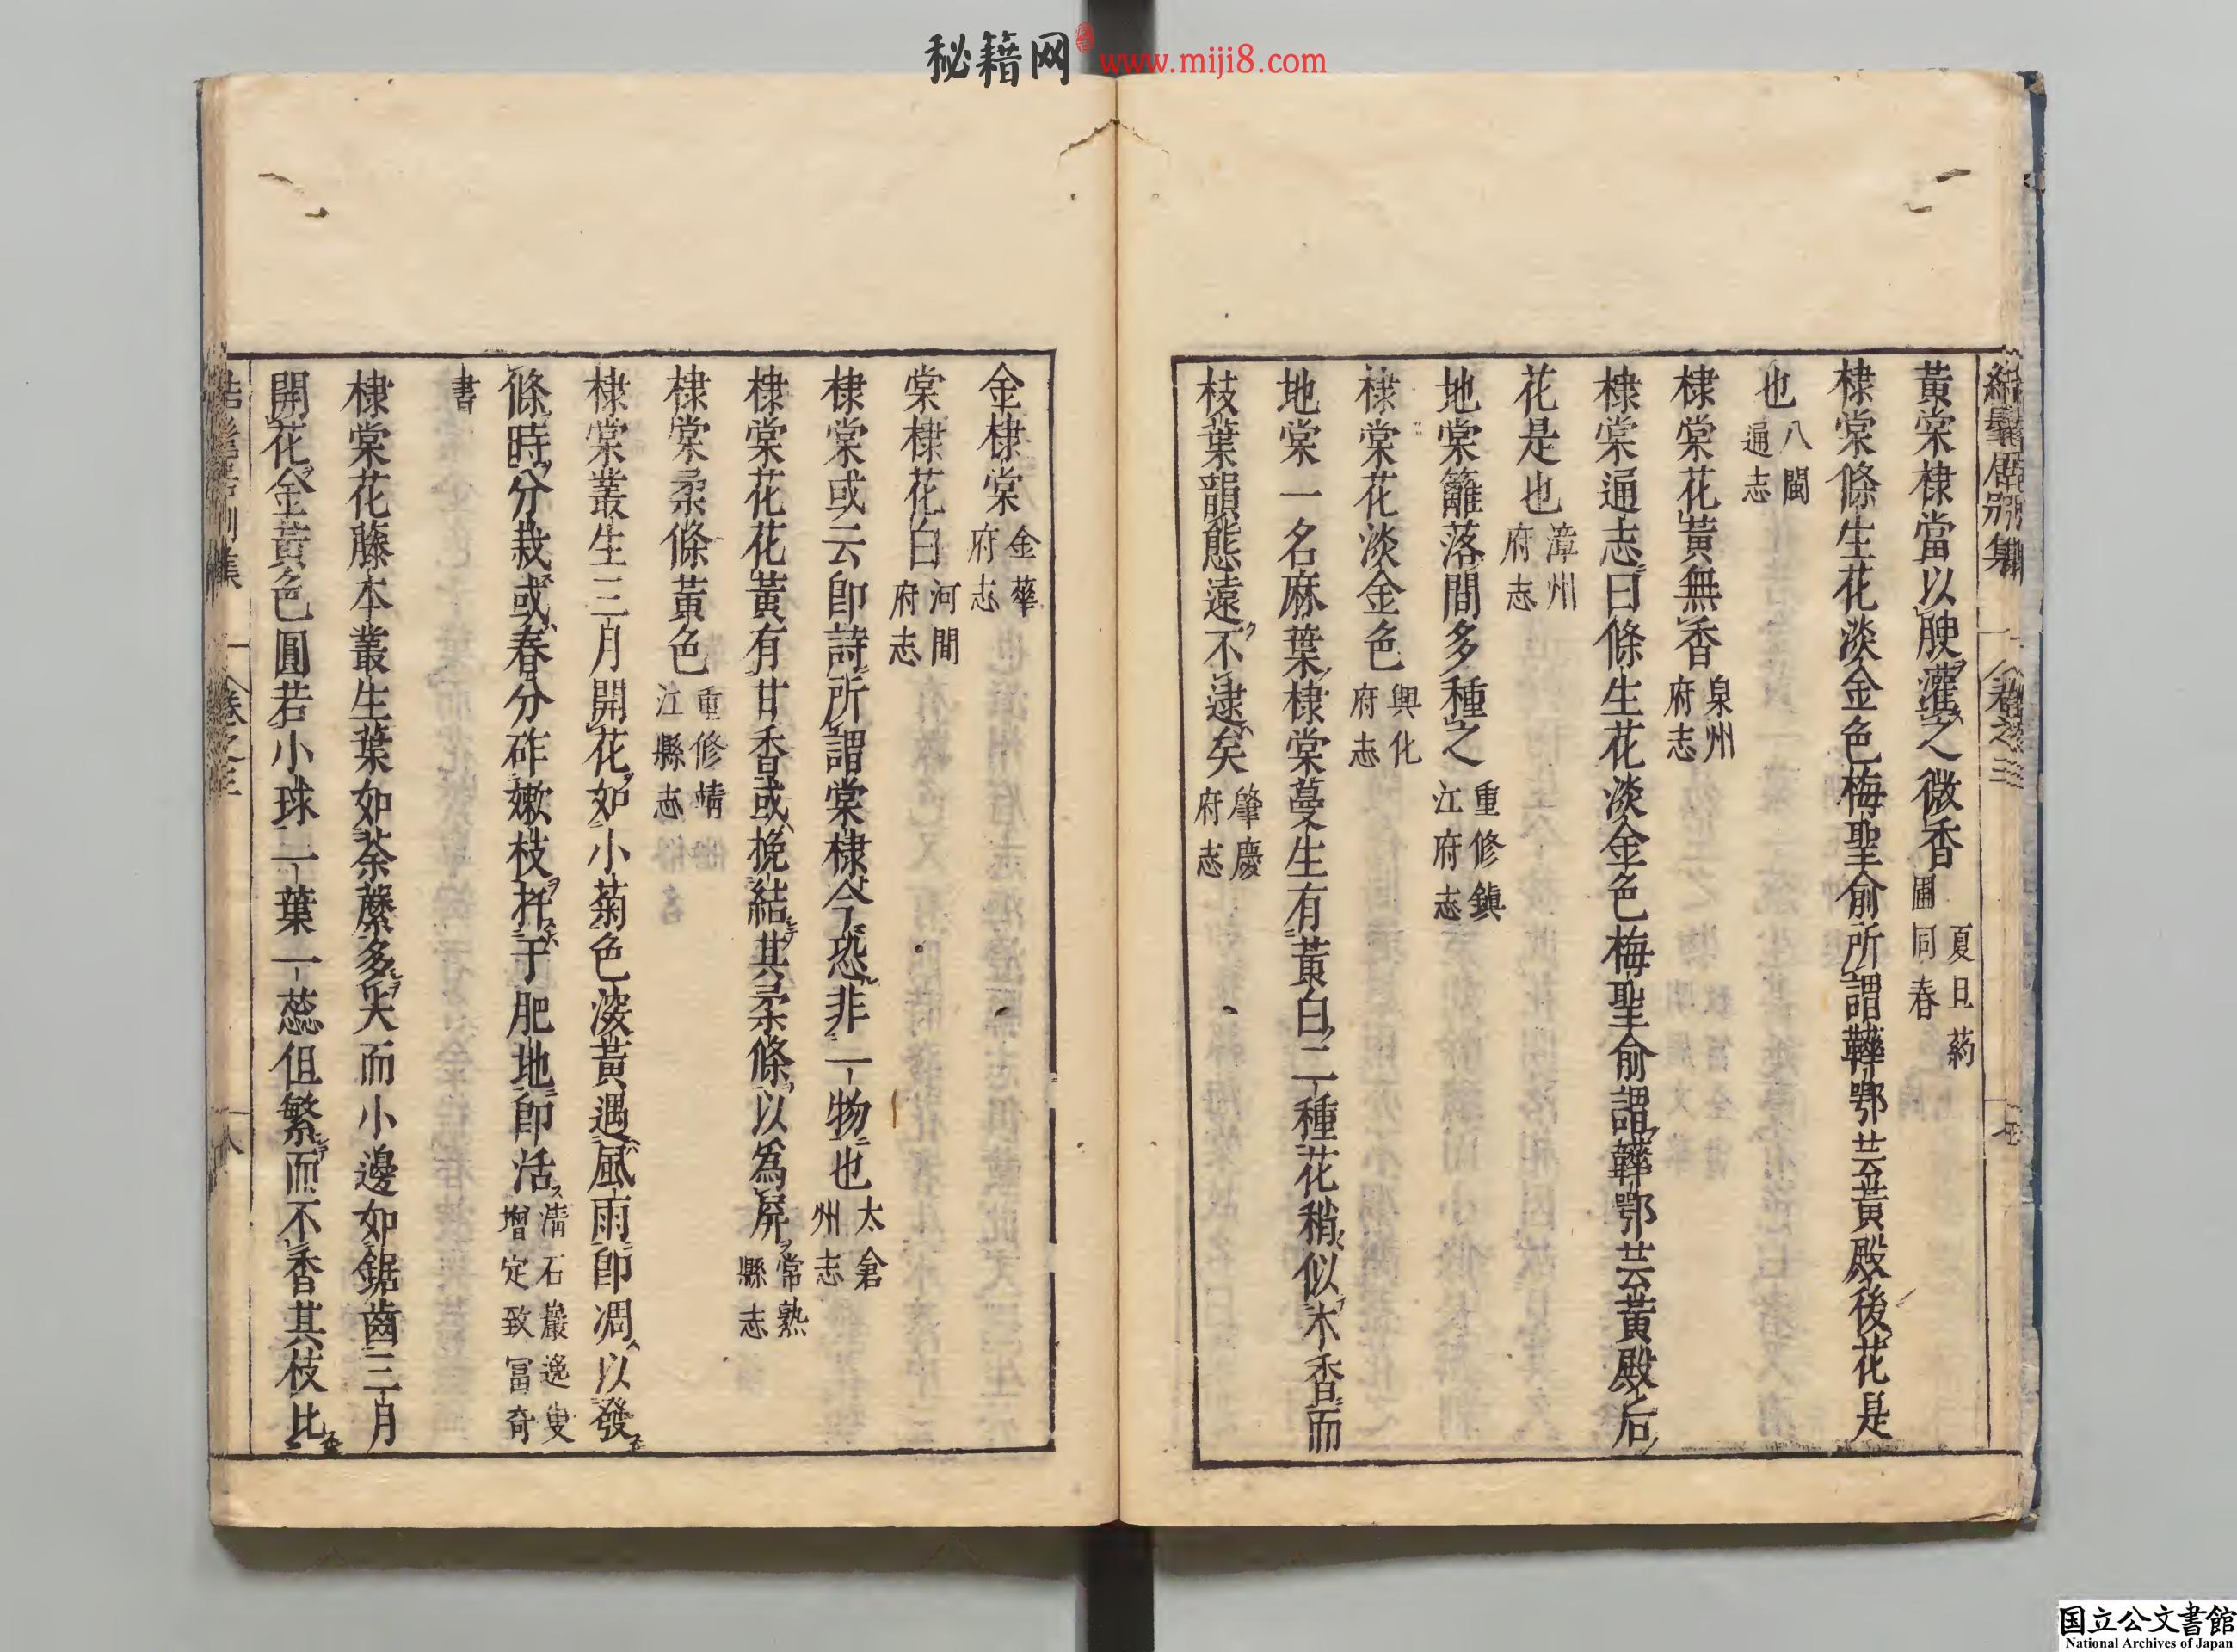 秘籍网 www.miji8.com
黃棠棣當以腴灌之微香 夏旦葯圃同春
棣棠條生花淡金色梅聖俞所謂韡鄂芸黃殿後花是
也 八閩通志
棣棠花黃無香 泉州府志
棣棠通志曰條生花淡金色梅聖俞謂韡鄂芸黃殿后
花是也 漳州府志
地棠籬落間多種之 重修鎮江府志
棣棠花淡金色 興化府志
地棠一名麻葉棣棠蔓生有黃白二種花稍似木香而
枝葉韻態遠不逮矣 肇慶府志
金棣棠 金華府志
棠棣花白 河間府志
棣棠或云卽詩所謂棠棣今恐非一物也 太倉州志
棣棠花花黃有甘香或挽結其柔條以為屏 常熟縣志
棣棠柔條黃色 重修靖江縣志
棣棠叢生三月開花如小菊色淡黃遇風雨卽凋以發
條時分栽或春分砟嫩枝扦于肥地卽活 淸石巖逸叟增定致冨奇
書
棣棠花藤本叢生葉如荼蘼多尖而小邊如鋸齒三月
開花金黃色圓若小球一葉一蕊但繁而不香其枝比
卷之三
国立公文書館
National Archives of Japan